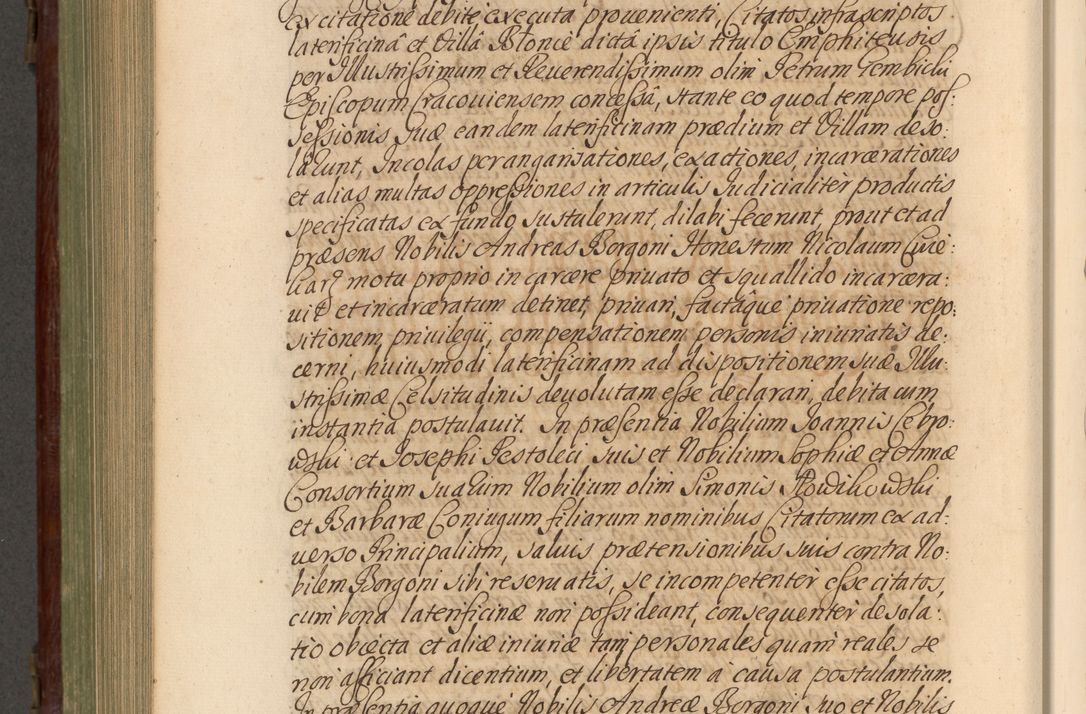 ex citatione debite executa prouenienti, Citatos infrascriptos
laterificinâ et Villâ Blonie dictâ ipsis titulo Emphiteusis
per Jllustrissimum et Reuerendissimum olim Petrum Gembicki
Episcopum Cracouiensem concessâ, stante eo quod tempore pos:
sessionis suæ eandem laterificinam prædium et Villam deso:
larunt, Incolas per angarisationes, exactiones, incarcerationes
et alias multas oppressiones in articulis Iudicialiter productis
specificatas ex fundo sustulerunt, dilabi fecerunt, prout et ad
præsens Nobilis Andreas Borgoni Honestum Nicolaum
motu proprio in carcere priuato et squallido incarcera:
uit et incarceratum detinet, priuari, factaque priuatione repo:
sitionem priuilegij, compensationem personis iniuriatis de:
cerni, huiusmodi laterificinam ad dispositionem suæ Jllu:
strissimæ Celsitudinis deuolutam esse declarari, debita cum
instantia postulauit. In præsentia Nobilium Ioannis Cebro:
wski et Iosephi Pestoleci suis et Nobilium Sophiæ et Annæ
Consortium suarum Nobilium olim Simonis Nowikowski
et Barbaræ Coniugum filiarum nominibus Citatorum ex ad:
uerso Principalium, saluis prætensionibus suis contra No:
bilem Borgoni sibi reseruatis, se incompetenter esse citatos,
cum bona laterificinæ non possideant, consequenter desola:
tio obiecta et aliæ iniuriæ tam personales quam reales se
non afficiant dicentium, et libertatem a causa postulantium.
In præsentia quoque Nobilis Andreæ Borgoni suo et Nobilis